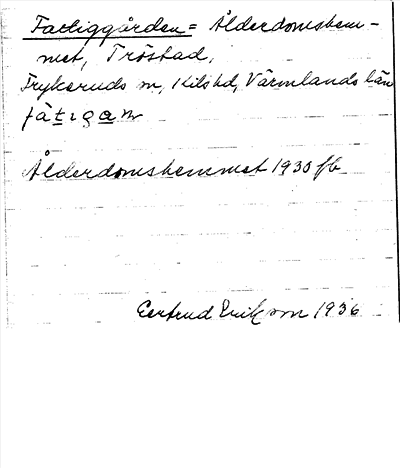 Fattiggården = Ålderdomshem-
met, Tröstad,
Frykeruds sn, Kils hd, Värmlands län
fàtigan
Ålderdomshemmet 1930 fb
Gertrud Erikson 1936